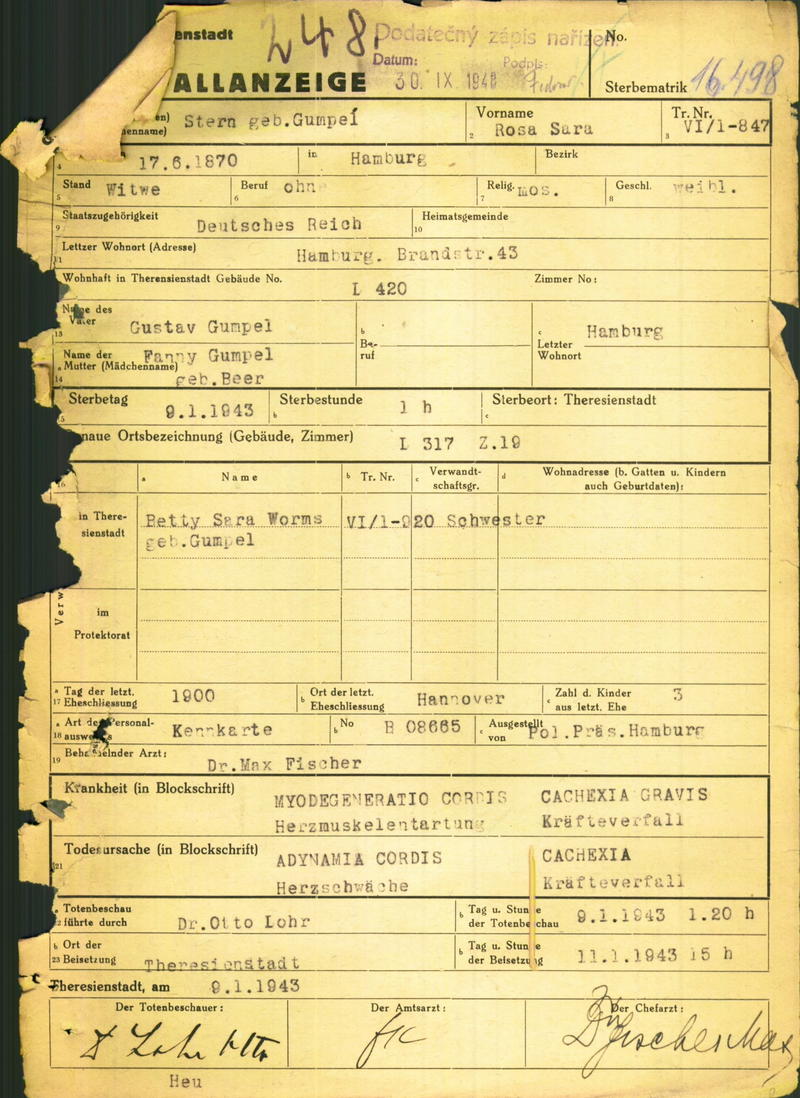 enstadt
248.
Podatečný zápis nařízen.
Datum:
Podpis:
30 IX 1948
No.
ALLANZEIGE
Sterbematrik 16.498
en)
henname)
Stern geb.Gumpel
Vorname
2 Rosa Sara
Tr. Nr.
3 VI/1-847
4 17.6.1870
in Hamburg
Bezirk
Stand
5 Witwe
Beruf
6 ohne
Relig.
7 mos.
Geschl.
8 weibl.
Staatszugehörigkeit
9 Deutsches Reich
Heimatsgemeinde
10
Lettzer Wohnort (Adresse)
11 Hamburg. Brandstr.43
Wohnhaft in Therensienstadt Gebäude No.
L 420
Zimmer No:
Name des
Vater
13 Gustav Gumpel
b
Be-
ruf
c
Letzter
Wohnort
Hamburg
Name der
a Mutter (Mädchenname)
14
Fanny Gumpel
geb.Beer
Sterbetag
9.1.1943
Sterbestunde
b 1 h
Sterbeort: Theresienstadt
c
naue Ortsbezeichnung (Gebäude, Zimmer)
L 317 Z.19
a Name
b Tr. Nr.
c Verwandt-
schaftsgr.
d Wohnadresse (b. Gatten u. Kindern
auch Geburtdaten):
in There-
sienstadt
Betty Sara Worms VI/1-920 Schwester
geb.Gumpel
Verw
im
Protektorat
a Tag der letzt.
17 Eheschliessung
1900
b Ort der letzt.
Eheschliessung
Hannover
c Zahl d. Kinder
aus letzt. Ehe
3
a Art des Personal-
18 ausweises
Kennkarte
b No
B 08665
c Ausgestellt
von
Pol.Präs.Hamburg
Behandelnder Arzt:
19 Dr.Max Fischer
Krankheit (in Blockschrift)
MYODEGENERATIO CORDIS CACHEXIA GRAVIS
Herzmuskelentartung Kräfteverfall
Todesursache (in Blockschrift)
21
ADYNAMIA CORDIS CACHEXIA
Herzschwäche Kräfteverfall
a Totenbeschau
führte durch
Dr.Otto Lohr
b Tag u. Stunde
der Totenbeschau
9.1.1943 1.20 h
b Ort der
23 Beisetzung
Theresienstadt
b Tag u. Stunde
der Beisetzung
11.1.1943 15 h
Theresienstadt, am 9.1.1943
Der Totenbeschauer:
Der Amtsarzt:
Der Chefarzt:
Dr Lohr Otto
Dr Fischer Max
Heu